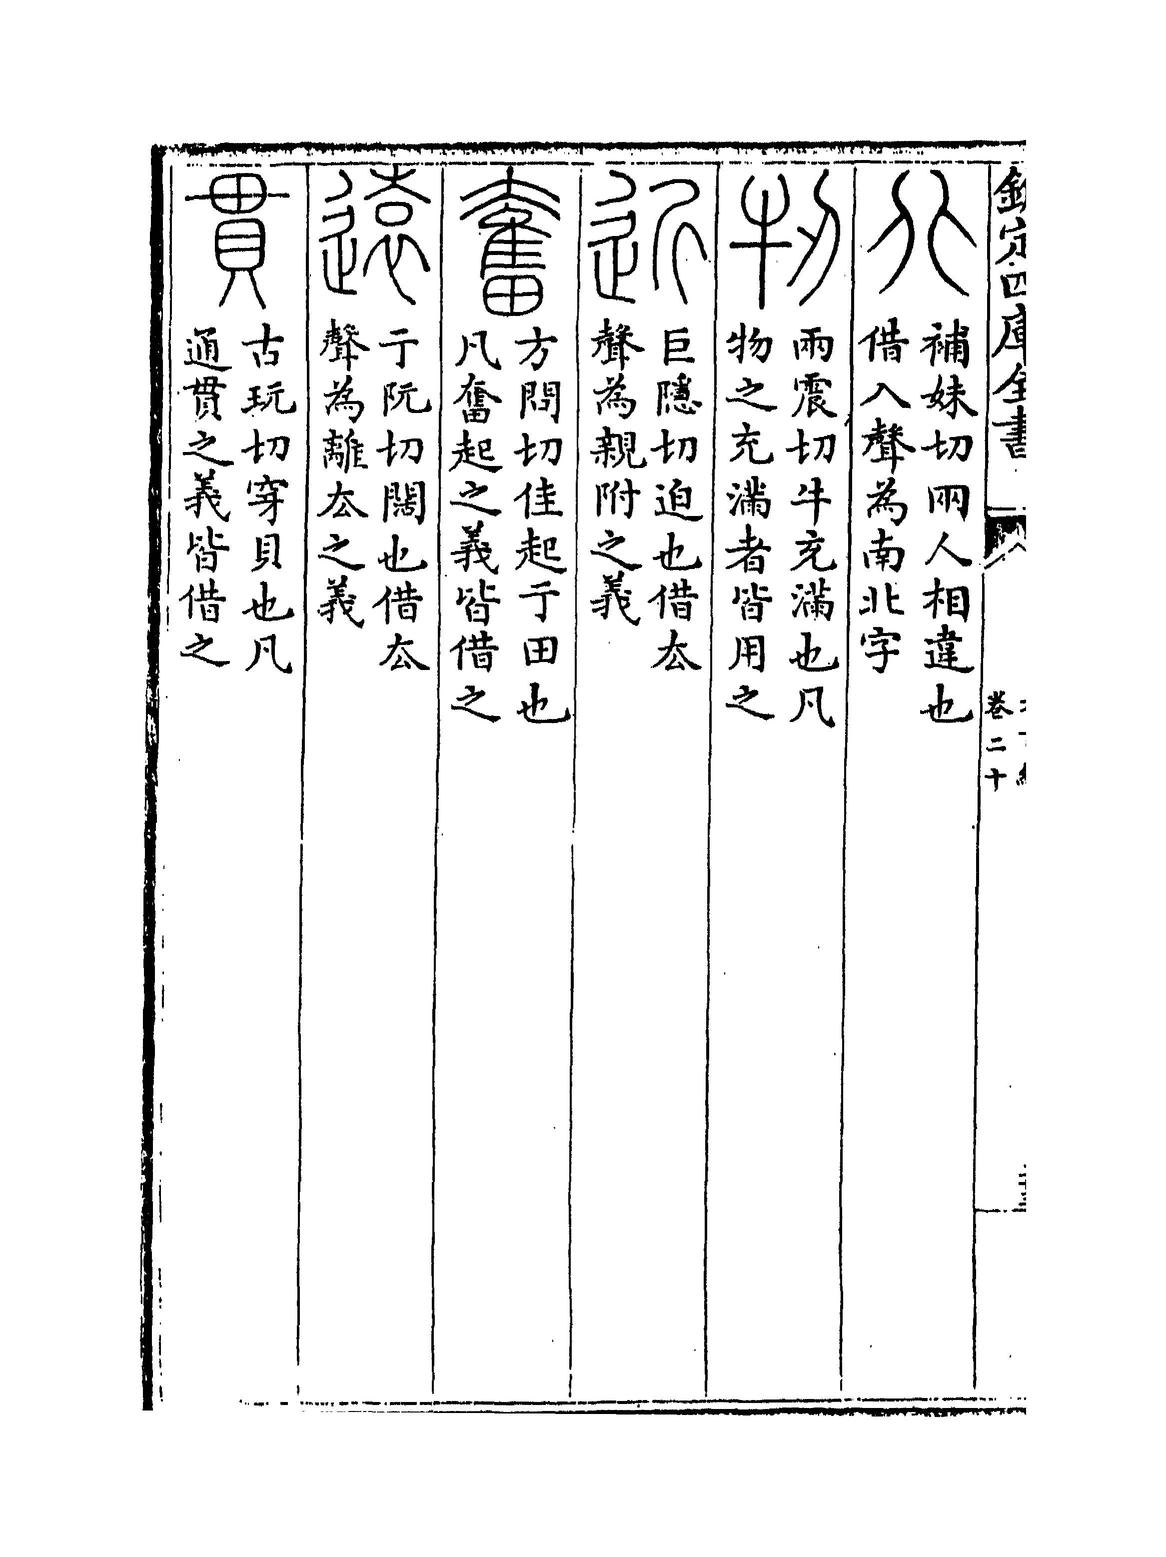 欽定四庫全書
卷二十
北
補妹切兩人相違也
借入聲為南北字
牣
雨震切牛充滿也凡
物之充滿者皆用之
近
巨隱切迫也借厺
聲為親附之義
奮
方問切佳起于田也
凡奮起之義皆借之
遠
于阮切闊也借厺
聲為離厺之義
貫
古玩切穿貝也凡
通貫之義皆借之